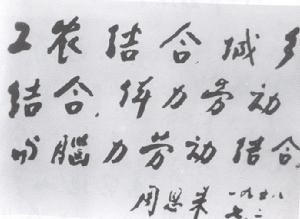 工农结合，城乡
结合，体力劳动
与脑力劳动结合
周恩来 一九六六